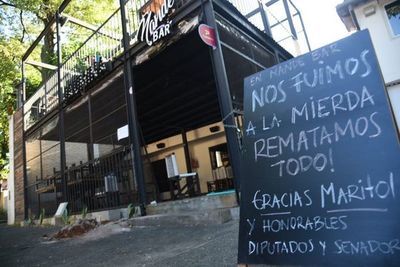 Mande
BAR
EN MANDE BAR
NOS FUIMOS
A LA MIERDA
REMATAMOS
TODO!
GRACIAS MARITO!
Y HONORABLES
DIPUTADOS Y SENADOR